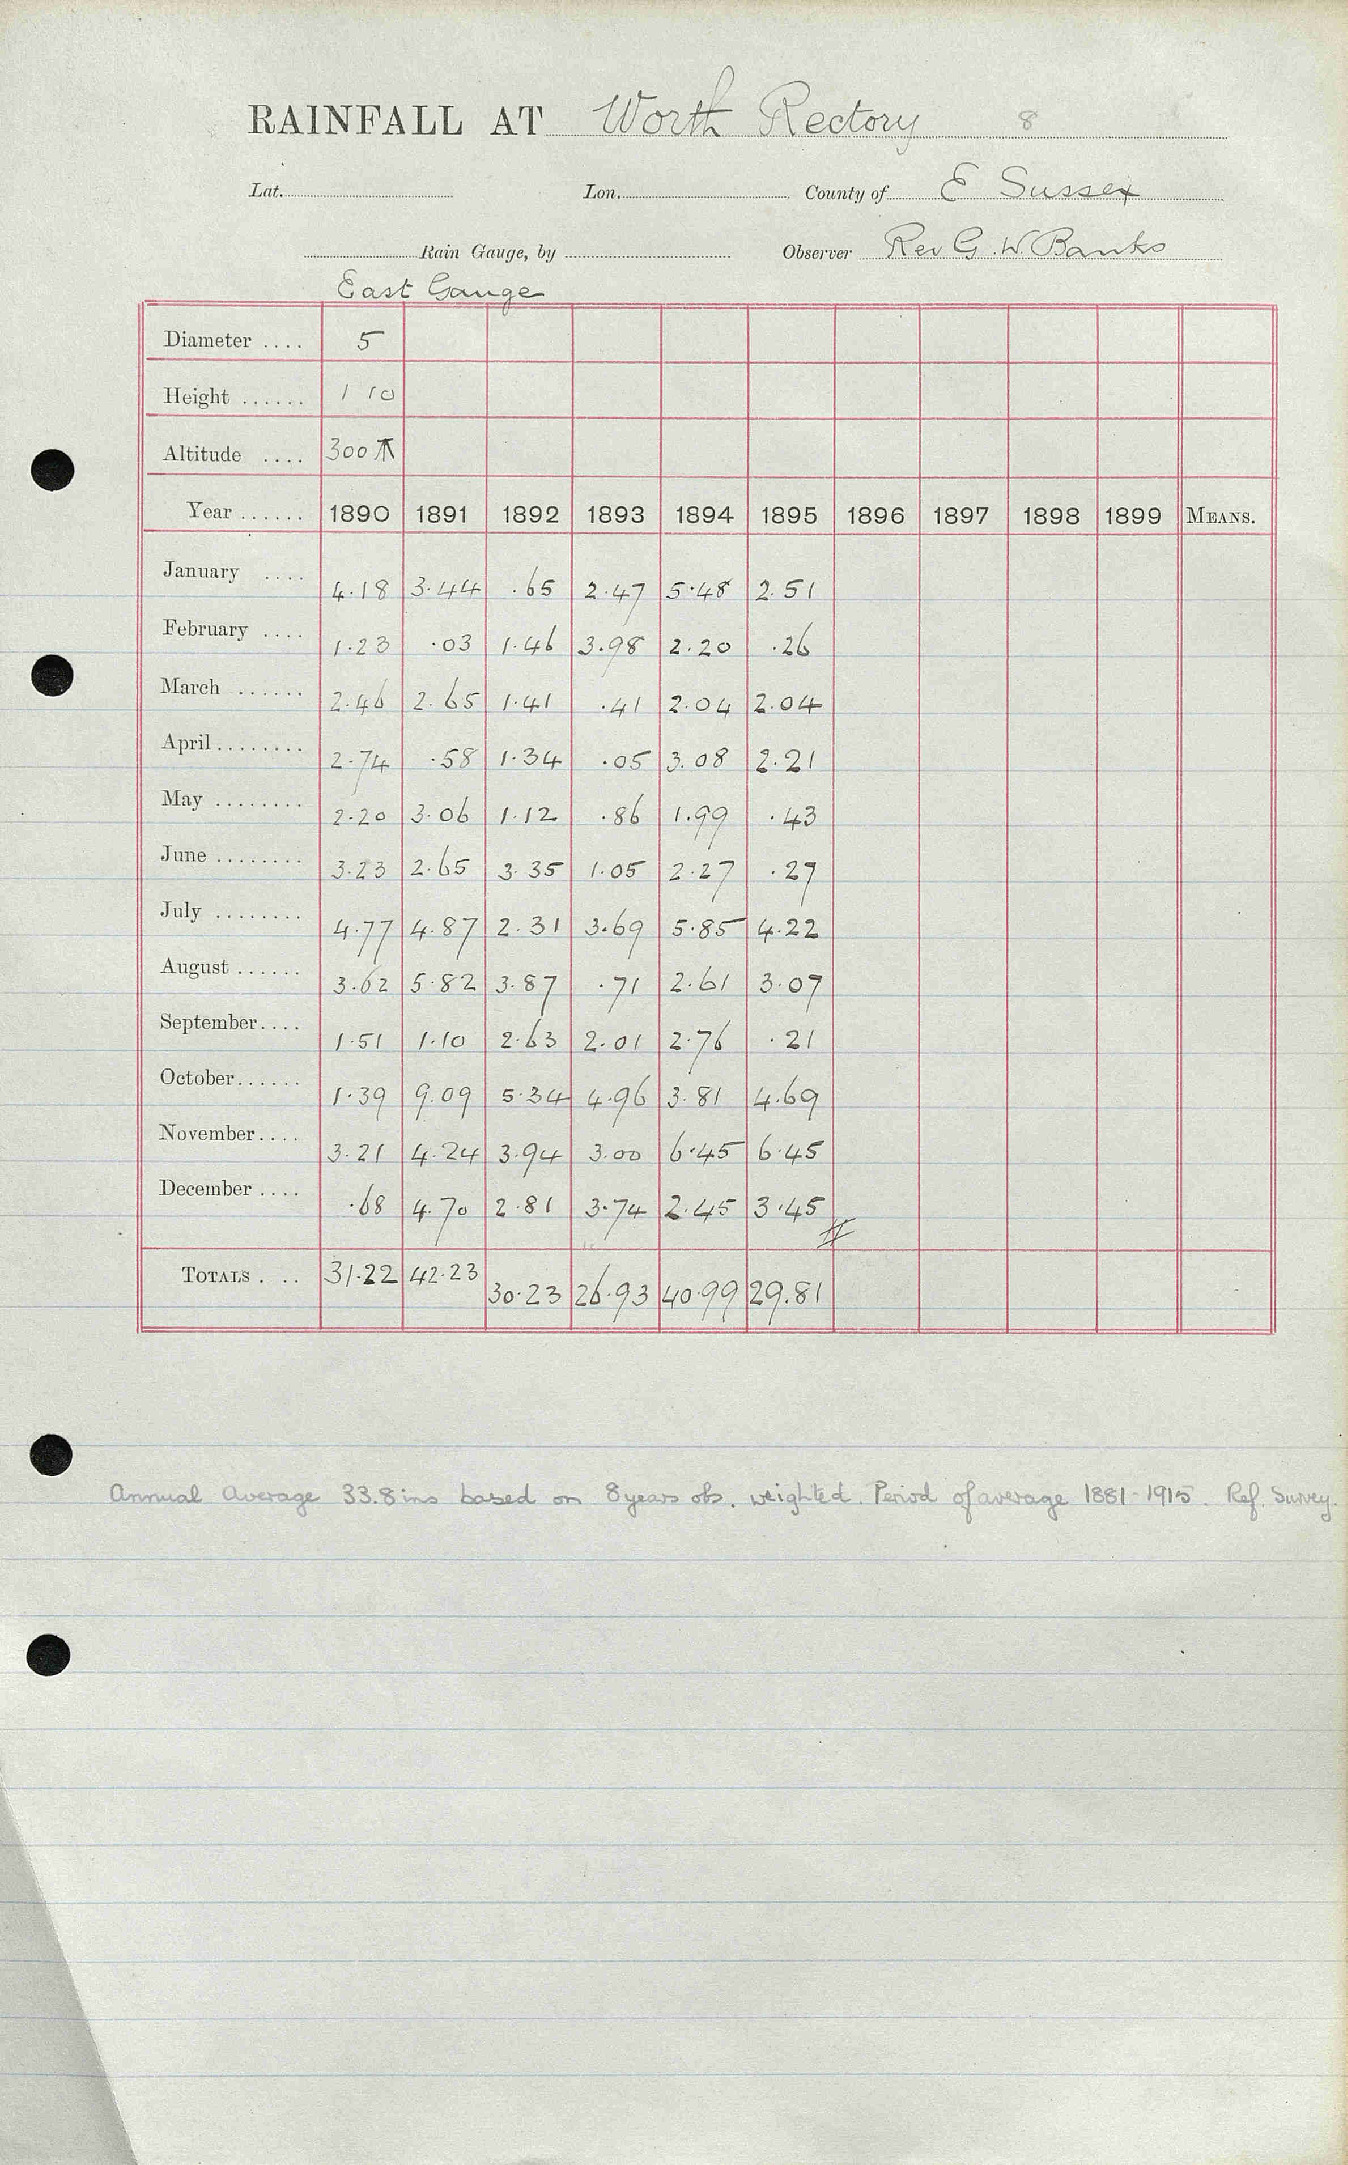 RAINFALL AT Worth Rectory 8
Lat. Lon. County of E Sussex
Rain Gauge, by Observer Rev G. W Banks
East Gauge
Diameter .... 5
Height ...... 1 10
Altitude .... 300
Year ...... 1890 1891 1892 1893 1894 1895 1896 1897 1898 1899 MEANS.
January .... 4.18 3.44 .65 2.47 5.48 2.51
February .... 1.23 .03 1.46 3.98 2.20 .26
March ...... 2.46 2.65 1.41 .41 2.04 2.04
April ........ 2.74 .58 1.34 .05 3.08 2.21
May ........ 2.20 3.06 1.12 .86 1.99 .43
June ........ 3.23 2.65 3.35 1.05 2.27 .27
July ........ 4.77 4.87 2.31 3.69 5.85 4.22
August ...... 3.62 5.82 3.87 .71 2.61 3.07
September.... 1.51 1.10 2.63 2.01 2.76 .21
October...... 1.39 9.09 5.34 4.96 3.81 4.69
November.... 3.21 4.24 3.94 3.00 6.45 6.45
December .... .68 4.70 2.81 3.74 2.45 3.45
TOTALS . .. 31.22 42.23 30.23 26.93 40.99 29.81
Annual Average 33.8 ins based on 8 years obs. weighted. Period of average 1881-1915. Ref. Survey.